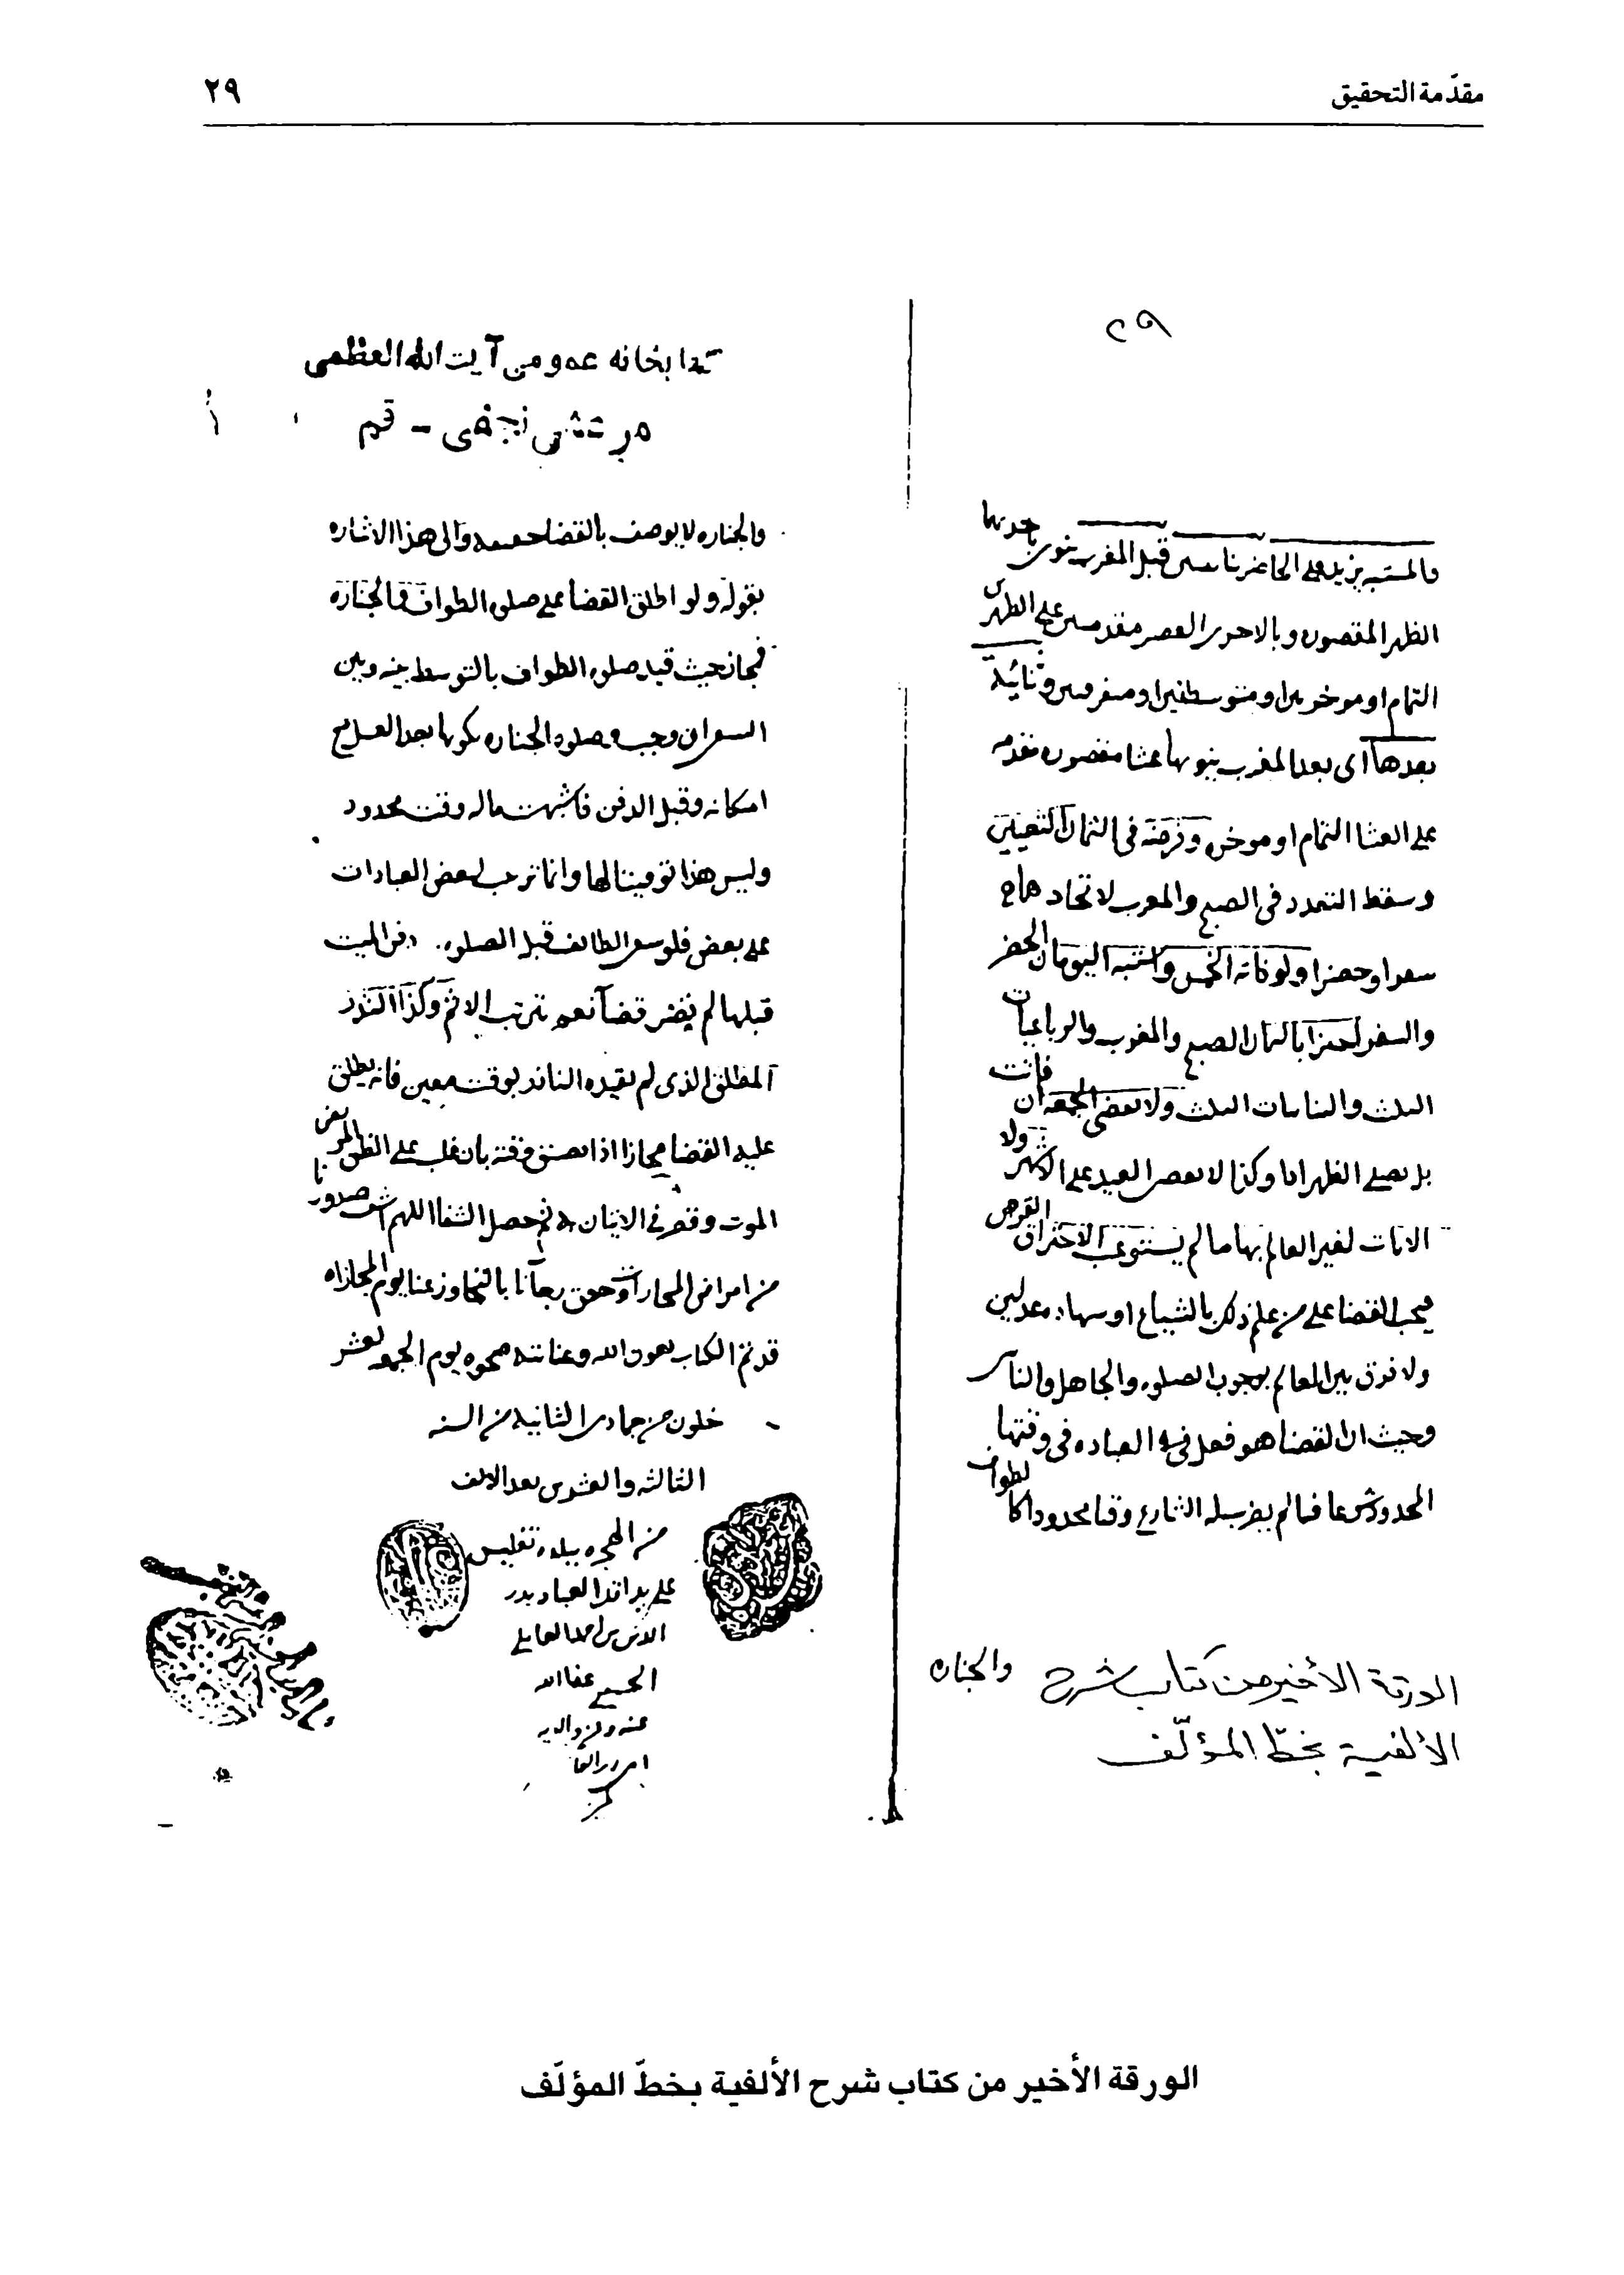 مقدّمة التحقيق
٢٩
٢٩
والمشتبه يزيد على الحاضر قبل المغرب ينوي باحدىهما
الظهر المقصوره وبالاخرى العصر مقدمتين على الظهر
التمام او موخرتين او متوسطتين او متفرقتين وثنائية
بعدها اى بعد المغرب ينوبها عشا مقصوره مقدمه
على العشا التمام او موخره فى الثمان التعيين
وسقط التعدد فى الصبح والمغرب لاتحادهما
سفرا وحضرا ولو فاته الخمس واشتبه اليومان الحضر
والسفر اجتزا بالثمان الصبح والمغرب والرباعيات
الثلث والثنائيات الثلث ولا تقضى الجمعه ان فاتت
بل يصلى الظهر وكذا لا العيد على الاشهر ولا
الايات لغير العالم بها ما لم يستوعب الاحتراق القرص
فيجب القضا على من علم ذلك بالشياع او عدلين
ولا فرق بين العالم بوجوب الصلوه والجاهل والناسى
وحيث ان القضا هو فعل العباده فى وقتها
المحدود شرعا فما لم الشارع وقتا محدودا كالطواف
والجنازه
الورقة الأخير من كتاب شرح
الألفية بخطّ المؤلّف
كتابخانه عمومى آيت الله العظمى
مرعشى نجفى - قم
والجنازه لا يوصف بالقضا حقيقه والى هذا الاشاره
بقوله ولو اطلق القضا على صلوه الطواف والجنازه
فمجاز حيث قيد صلوه الطواف بالتوسط بينه وبين
السعى ان وجب وصلوه الجنازه بكونها بعد الغسل مع
امكانه وقبل الدفن فاشبهت ماله وقت محدود
وليس هذا توقيتا لها وانما ترتيب لبعض العبادات
على بعض فلو سعى الطائف قبل الصلوه او دفن الميت
قبلها لم يضر قضآ نعم ترتب الاثم وكذا النذر
المطلق الذى لم يقيده الناذر بوقت معين فانه يطلق
عليه القضا مجازا اذا تضيق وقته بان غلب على الظن
الموت وقصر فى الاتيان به ثم حصل الشفا اللهم اشف صدورنا
من امراض وحقق رجآنا بالتجاوز عنا يوم المجازاه
قد تم الكتاب بعون الله وعنايته ضحوه يوم الجمعه لعشر
خلون من جمادى الثانيه من السنه
الثالثه والعشرين بعد الالف
من الهجره ببلده تفليس
على يد اقل العباد بدر
الدين بن احمد العاملى
الحسينى عفا الله
عنه وعن والديه
الورقة الأخير من كتاب شرح الألفية بخطّ المؤلّف